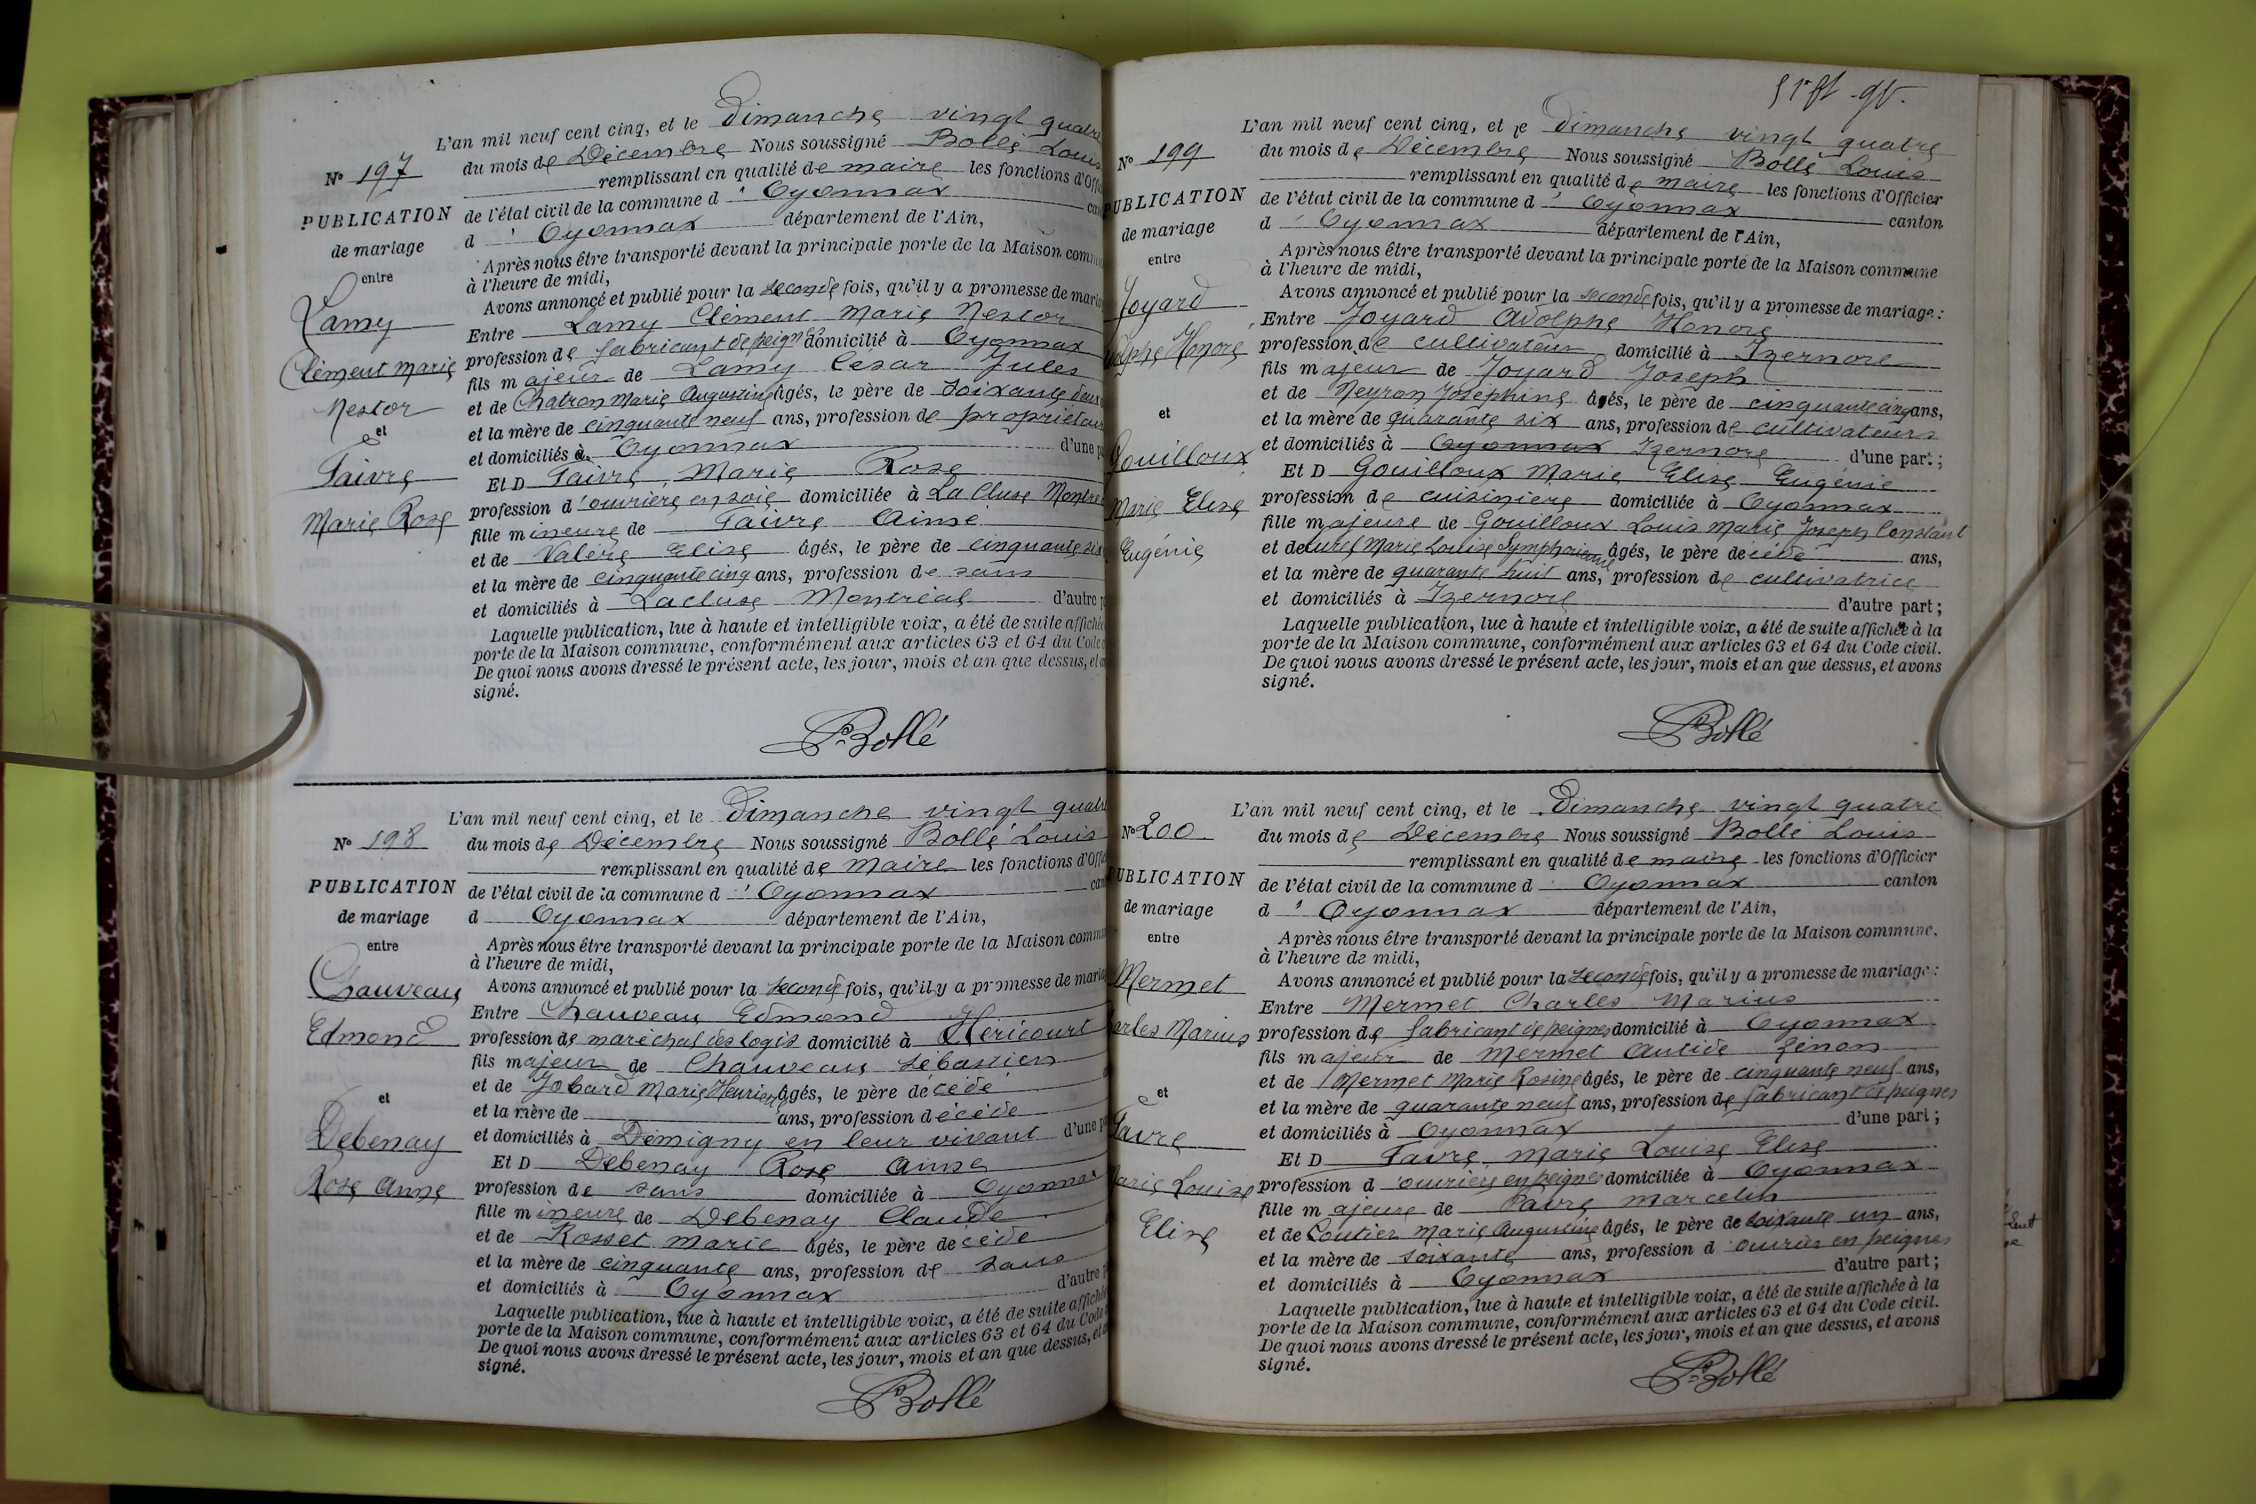 L'an mil neuf cent cinq, et le Dimanche vingt quatre
du mois de Décembre Nous soussigné Bollé Louis
remplissant en qualité de maire les fonctions d'Offi
de l'état civil de la commune d' Oyonnax can
d' Oyonnax département de l'Ain,
Après nous être transporté devant la principale porte de la Maison commu
à l'heure de midi,
Avons annoncé et publié pour la seconde fois, qu'il y a promesse de maria
Entre Lamy Clément Marie Nestor
profession de fabricant de peignes domicilié à Oyonnax
fils majeur de Lamy César Jules
et de Chatron Marie Augustine âgés, le père de soixante deux
et la mère de cinquante neuf ans, profession de propriétaire
et domiciliés à Oyonnax d'une pa
Et D Faivre, Marie Rose
profession d'ouvrière en soie domiciliée à La Cluse Montré
fille mineure de Faivre Aimé
et de Valére Elise âgés, le père de cinquante six
et la mère de cinquante cinq ans, profession de sans
et domiciliés à Lacluse Montréal d'autre p
Laquelle publication, lue à haute et intelligible voix, a été de suite affichée
porte de la Maison commune, conformément aux articles 63 et 64 du Code c
De quoi nous avons dressé le présent acte, les jour, mois et an que dessus, et a
signé.
Bollé
N° 197
PUBLICATION
de mariage
entre
Lamy
Clément Marie
Nestor
et
Faivre
Marie Rose
L'an mil neuf cent cinq, et le Dimanche vingt quatre
du mois de Décembre Nous soussigné Bollé Louis
remplissant en qualité de Maire les fonctions d'Offi
de l'état civil de la commune d' Oyonnax can
d Oyonnax département de l'Ain,
Après nous être transporté devant la principale porte de la Maison commu
à l'heure de midi,
Avons annoncé et publié pour la seconde fois, qu'il y a promesse de maria
Entre Chauveau Edmond
profession de maréchal des logis domicilié à Héricourt
fils majeur de Chauveau Sébastien
et de Jobard Marie Henriette âgés, le père décédé
et la mère de ans, profession décédé
et domiciliés à Demigny en leur vivant d'une pa
Et D Debenay Rose Anne
profession de sans domiciliée à Oyonnax
fille mineure de Debenay Claude
et de Rosset Marie âgés, le père decédé
et la mère de cinquante ans, profession de sans
et domiciliés à Oyonnax d'autre p
Laquelle publication, lue à haute et intelligible voix, a été de suite affichée
porte de la Maison commune, conformément aux articles 63 et 64 du Code
De quoi nous avons dressé le présent acte, les jour, mois et an que dessus, et a
signé.
Bollé
N° 198
PUBLICATION
de mariage
entre
Chauveau
Edmond
et
Debenay
Rose Anne
L'an mil neuf cent cinq, et le Dimanche vingt quatre
du mois de Décembre Nous soussigné Bollé Louis
remplissant en qualité de maire les fonctions d'Officier
de l'état civil de la commune d' Oyonnax canton
d' Oyonnax département de l'Ain,
Après nous être transporté devant la principale porte de la Maison commune
à l'heure de midi,
Avons annoncé et publié pour la seconde fois, qu'il y a promesse de mariage :
Entre Joyard Adolphe Honoré
profession de cultivateur domicilié à Izernore
fils majeur de Joyard Joseph
et de Neyron Joséphine âgés, le père de cinquante cinq ans,
et la mère de quarante six ans, profession de cultivateurs
et domiciliés à Oyonnax Izernore d'une part ;
Et D Gouilloux Marie Elise Eugénie
profession de cuisinière domiciliée à Oyonnax
fille majeure de Gouilloux Louis Marie Joseph Constant
et de Marie Louise Symphoriene âgés, le père decédé ans,
et la mère de quarante huit ans, profession de cultivatrice
et domiciliés à Izernore d'autre part ;
Laquelle publication, lue à haute et intelligible voix, a été de suite affichée à la
porte de la Maison commune, conformément aux articles 63 et 64 du Code civil.
De quoi nous avons dressé le présent acte, les jour, mois et an que dessus, et avons
signé.
Bollé
N° 199
PUBLICATION
de mariage
entre
Joyard
dolphe Honoré
et
Gouilloux
Marie Elise
Eugénie
L'an mil neuf cent cinq, et le Dimanche vingt quatre
du mois de Décembre Nous soussigné Bollé Louis
remplissant en qualité de maire les fonctions d'Officier
de l'état civil de la commune d Oyonnax canton
d' Oyonnax département de l'Ain,
Après nous être transporté devant la principale porte de la Maison commune.
à l'heure de midi,
Avons annoncé et publié pour la seconde fois, qu'il y a promesse de mariage :
Entre Mermet Charles Marius
profession de fabricant de peignes domicilié à Oyonnax
fils majeur de Mermet Antide Zénon
et de Mermet Marie Rosine âgés, le père de cinquante neuf ans,
et la mère de quarante neuf ans, profession de fabricant de peignes
et domiciliés à Oyonnax d'une part ;
Et D Favre, Marie Louise Elise
profession d' ouvrière en peignes domiciliée à Oyonnax
fille majeure de Favre Marcelin
et de Coutier Marie Augustine âgés, le père de soixante un ans,
et la mère de soixante ans, profession d' ouvrier en peignes
et domiciliés à Oyonnax d'autre part ;
Laquelle publication, lue à haute et intelligible voix, a été de suite affichée à la
porte de la Maison commune, conformément aux articles 63 et 64 du Code civil.
De quoi nous avons dressé le présent acte, les jour, mois et an que dessus, et avons
signé.
Bollé
N° 200
PUBLICATION
de mariage
entre
Mermet
arles Marius
et
Favre
Marie Louise
Elise